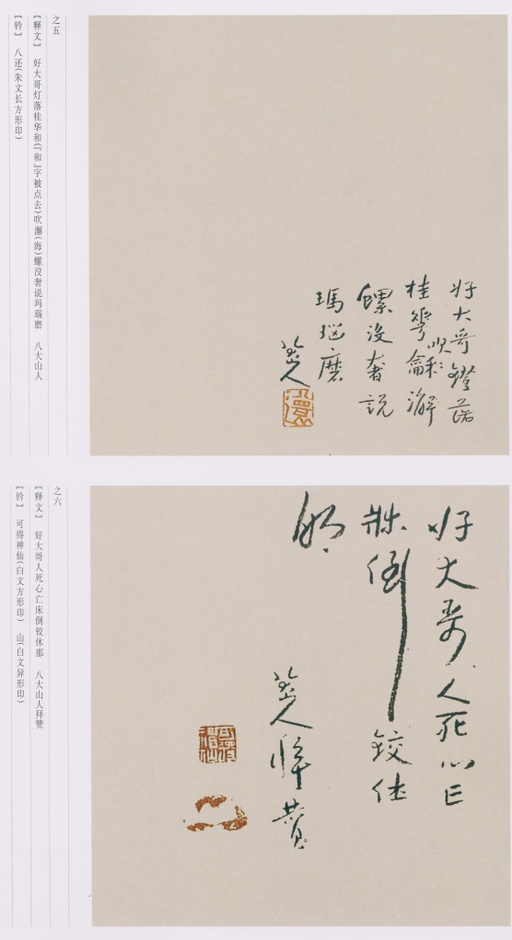 好大哥鐙落
桂華龢吹澥
螺没奢説
瑪瑙磨
八大山人
之五
【释文】 好大哥灯落桂华和(『和』字被点去)吹澥(海)螺没奢说玛瑙磨 八大山人
【钤】 八还(朱文长方形印)
好大哥人死心亡
牀倒鉸休
那
八大山人拜赞
之六
【释文】 好大哥人死心亡床倒铰休那 八大山人拜赞
【钤】 可得神仙(白文方形印) 山(白文异形印)